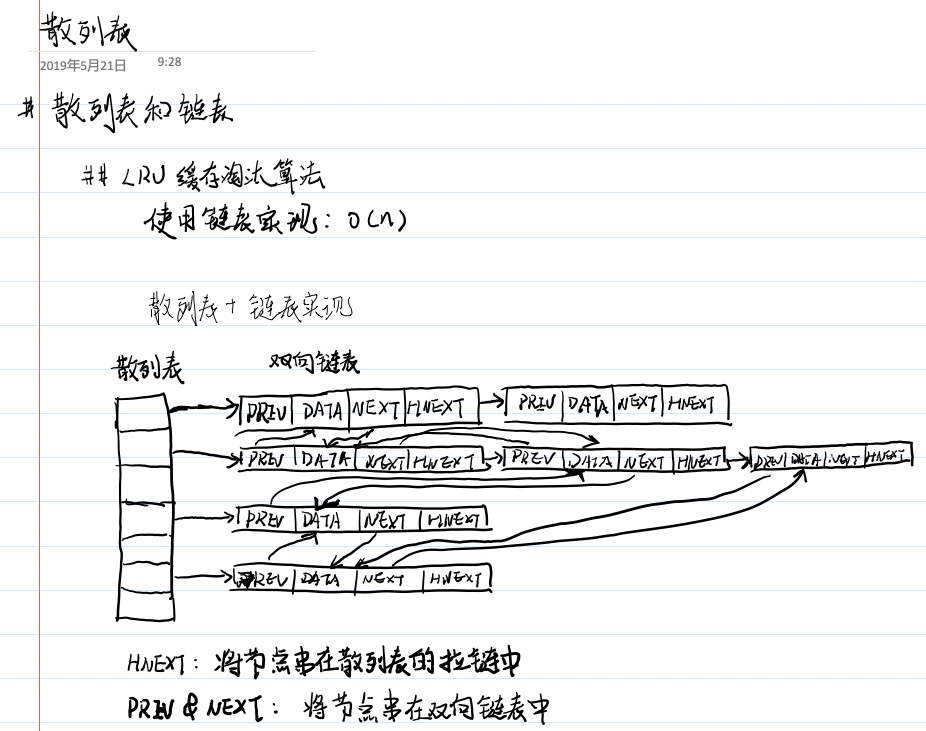 散列表
2019年5月21日 9:28
# 散列表和链表
## LRU 缓存淘汰算法
使用链表实现: O(n)
散列表 + 链表实现
散列表 双向链表
PREV DATA NEXT HNEXT PREV DATA NEXT HNEXT
PREV DATA NEXT HNEXT PREV DATA NEXT HNEXT PREV DATA NEXT HNEXT
PREV DATA NEXT HNEXT
PREV DATA NEXT HNEXT
HNEXT: 将节点串在散列表的拉链中
PREV & NEXT: 将节点串在双向链表中